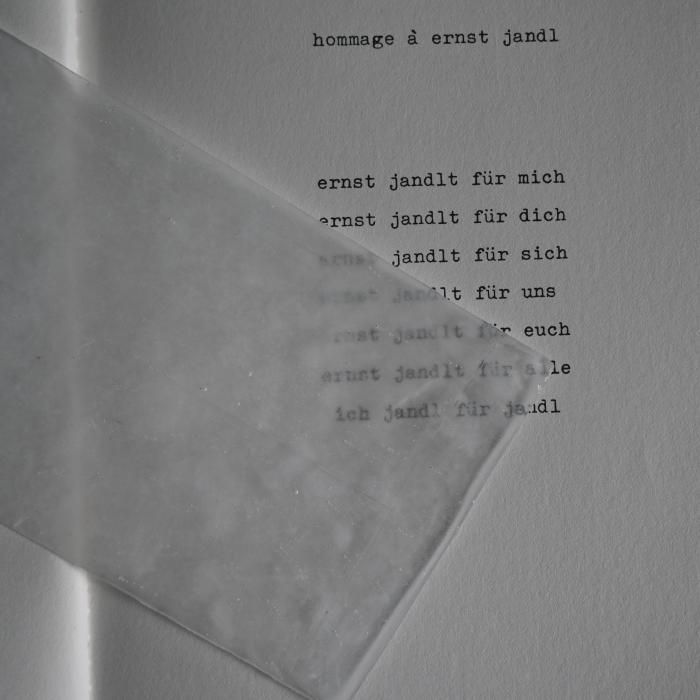 hommage à ernst jandl
ernst jandlt für mich
ernst jandlt für dich
ernst jandlt für sich
ernst jandlt für uns
ernst jandlt für euch
ernst jandlt für alle
ich jandl für jandl